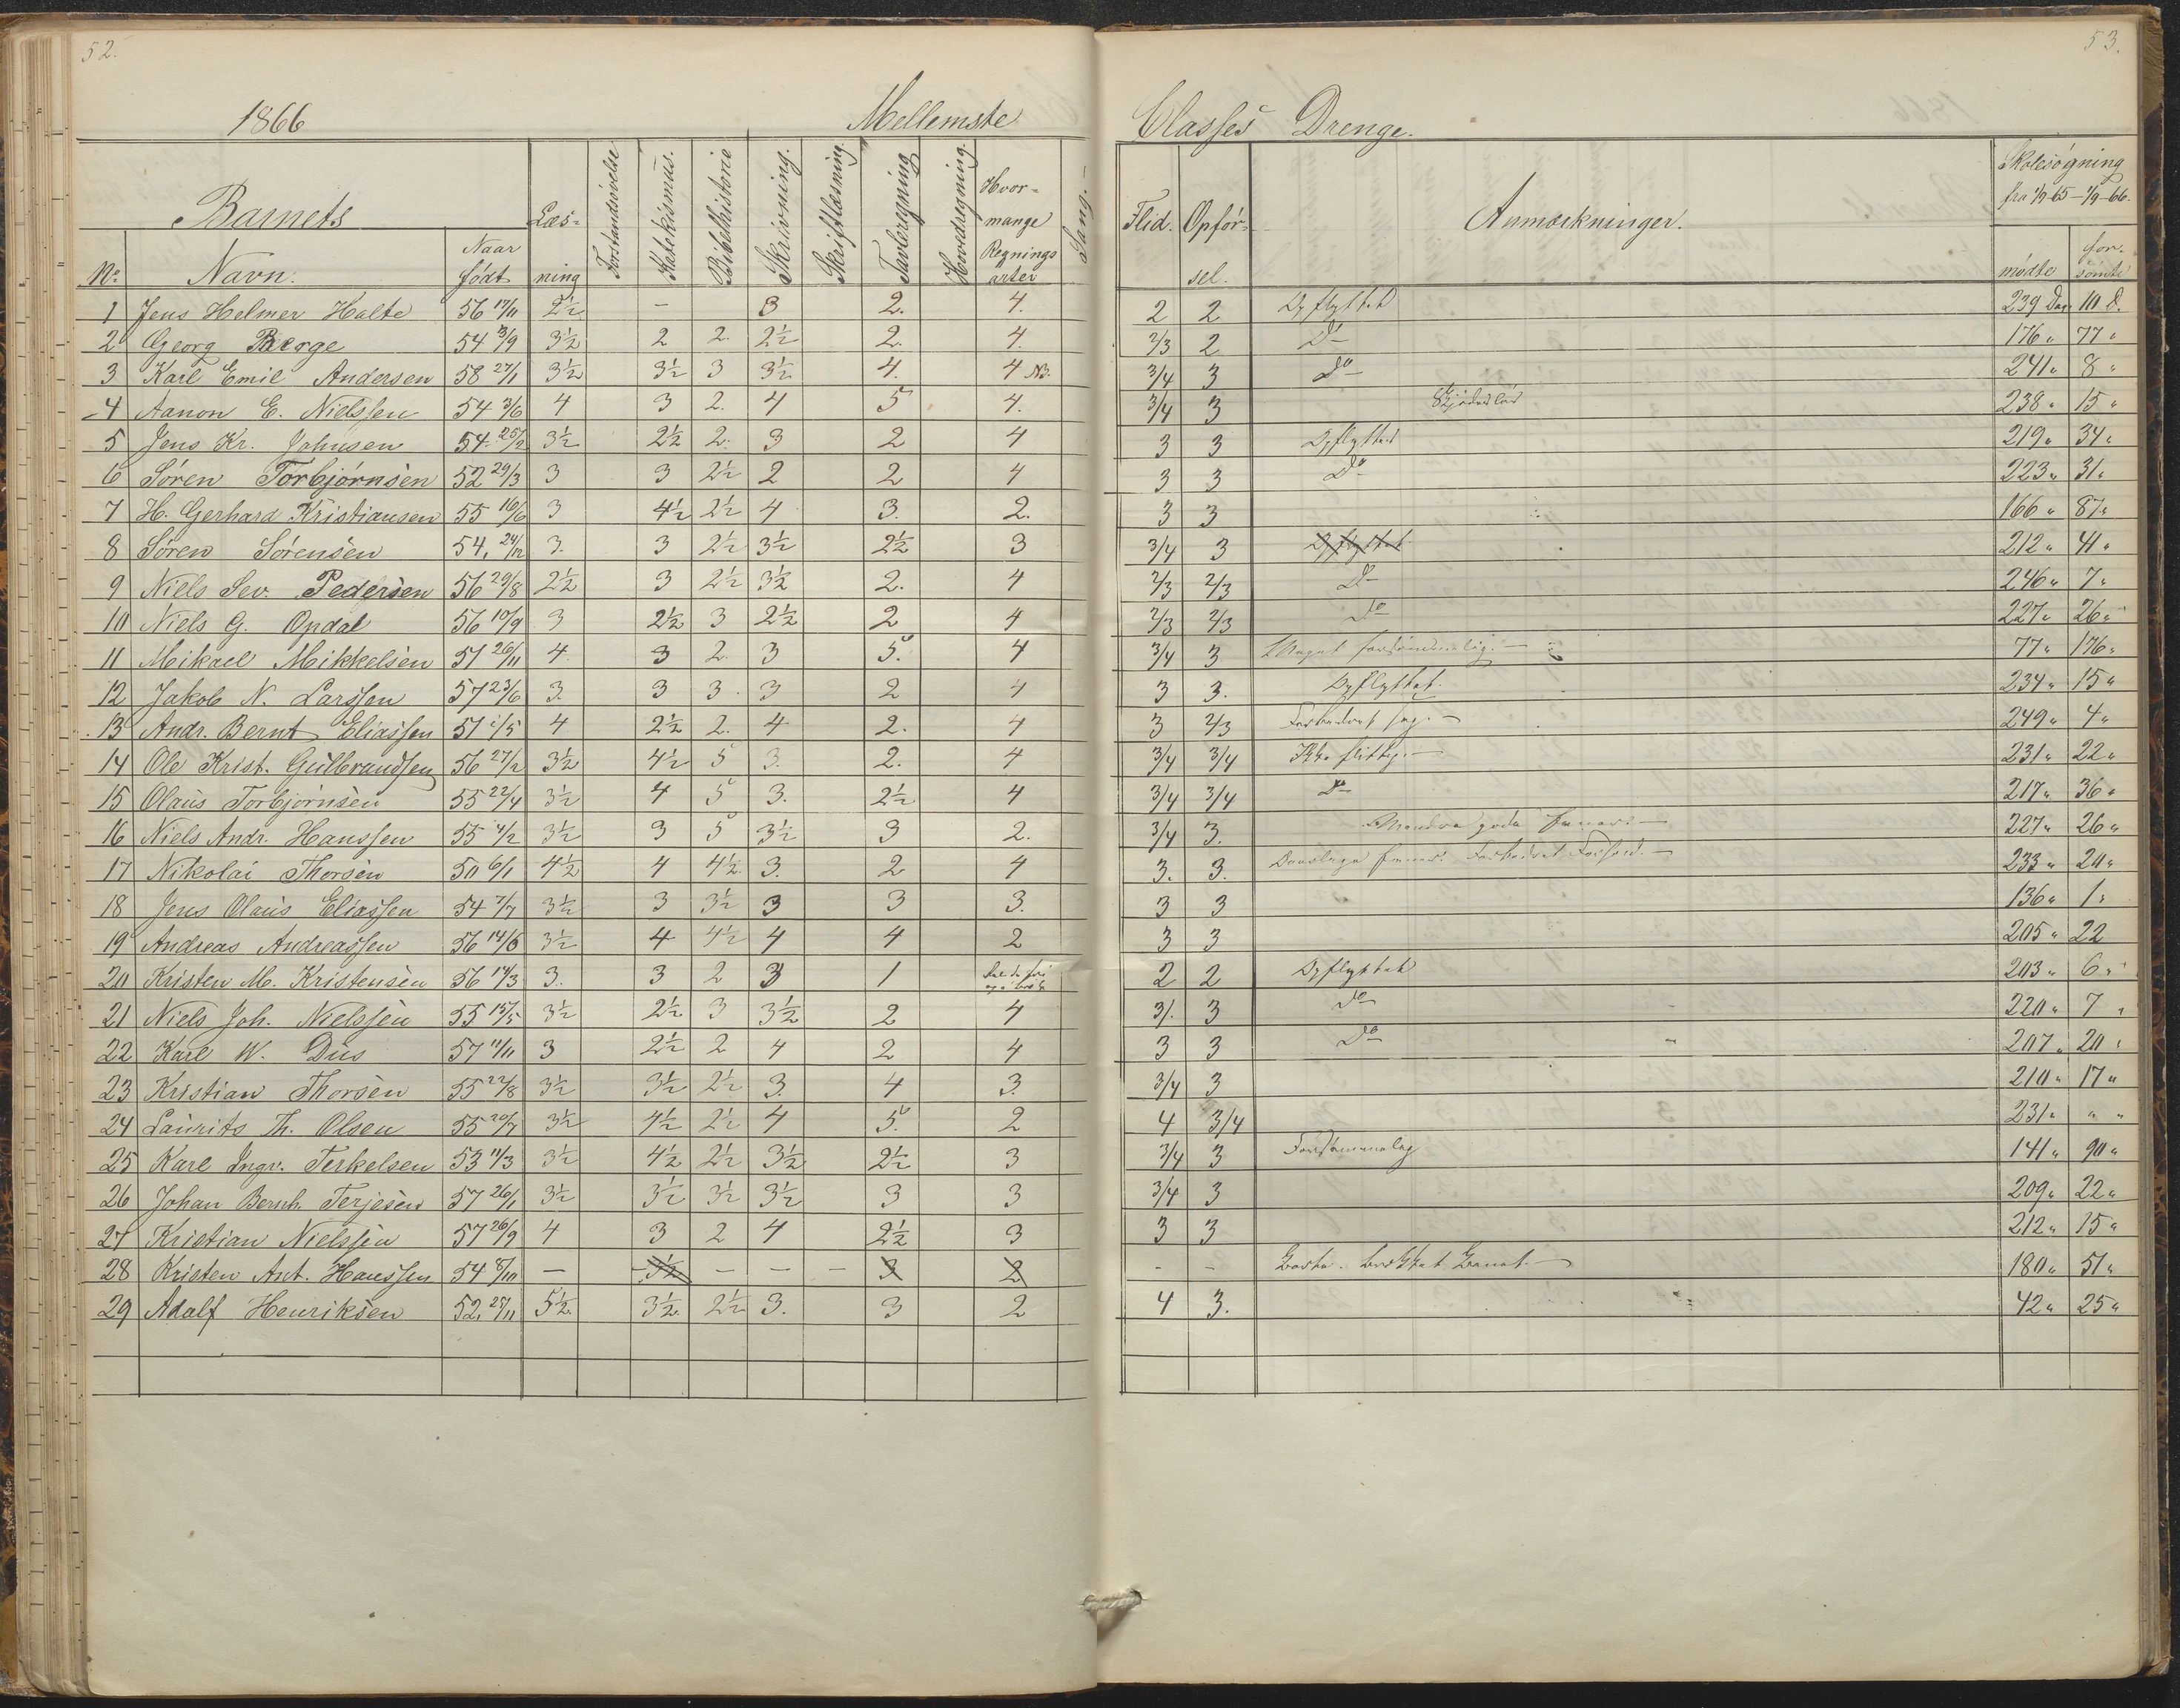 52.
53.
1866 Mellemste Classes Drenge.
Barnets Læs- Forstandsøvelse Katekismus. Bibelhistorie Skrivning. Skriftlæsning. Tavleregning Hovedregning. Hvor- Sang. Flid. Opfør- Anmærkninger. Skolesøgning
mange fra 1/9-65-1/9-66.
No. Navn. Naar født ning Regnings arter sel. mødte for- sømte
1 Jens Helmer Halte 56 17/11 2½ - 3 2. 4. 2 2 Opflyttet 239 Dag 10 d.
2 Georg Berge 54 3/9 3½ 2 2. 2½ 2. 4. 2/3 2 Do 176 " 77 "
3 Karl Emil Andersen 58 27/1 3½ 3½ 3 3½ 4. 4 NB. 3/4 3 Do 241 " 8 "
4 Aanon E. Nielssen 54 3/6 4 3 2. 4 5 4. 3/4 3 238 " 15 "
5 Jens Kr. Johnsen 54. 25/2 3½ 2½ 2. 3 2 4 3 3 Opflyttet 219 " 34 "
6 Søren Torbjørnsen 52 29/3 3 3 2½ 2 2 4 3 3 Do 223 " 31 "
7 H. Gerhard Kristiansen 55 16/6 3 4½ 2½ 4 3. 2. 3 3 166 " 87 "
8 Søren Sørensen 54. 24/12 3. 3 2½ 3½ 2½ 3 3/4 3 Opflyttet 212 " 41 "
9 Niels Sev. Pedersen 56 29/8 2½ 3 2½ 3½ 2. 4 2/3 2/3 Do 246 " 7 "
10 Niels G. Opdal 56 10/9 3 2½ 3 2½ 2 4 2/3 2/3 Do 227 " 26 "
11 Mikael Mikkelsen 51 26/11 4 3 2. 3 5. 4 3/4 3 Meget forsømmelig. - 77 " 176 "
12 Jakob N. Larssen 57 23/6 3. 3 3. 3 2 4 3 3. Opflyttet. 234 " 15 "
13 Andr. Bernt Eliassen 51 /5 4 2½ 2. 4 2. 4 3 2/3 Forbedret sig. - 249 " 4 "
14 Ole Krist. Gulbrandsen 56 27/2 3½ 4½ 5 3. 2. 4 3/4 3/4 Ikke flittig. - 231 " 22 "
15 Olaus Torbjørnsen 55 22/4 3½ 4 5 3. 2½ 4 3/4 3/4 Do 217 " 36 "
16 Niels Andr. Hanssen 55 4/2 3½ 3 5 3½ 3 2. 3/4 3. Mindre gode Evner. - 227 " 26 "
17 Nikolai Thorsen 50 6/1 4½ 4 4½ 3. 2 4 3. 3. Daarlige Evner. Forbedret Forhold. - 233 " 20 "
18 Jens Olaus Eliassen 54 7/7 3½ 3 3½ 3 3 3. 3 3 136 " 1 "
19 Andreas Andreassen 56 14/6 3½ 4 4½ 4 4 2 3 3 205 " 22
20 Kristen M. Kristensen 56 14/3 3. 3 2 3 1 2 2 Opflyttet 203 " 6 "
21 Niels Joh. Nielssen 55 15/5 3½ 2½ 3 3½ 2 4 3/. 3 Do 220 " 7 "
22 Karl W. Dus 57 11/11 3 2½ 2 4 2 4 3 3 Do 207 " 20 "
23 Kristian Thorsen 55 22/8 3½ 3½ 2½ 3. 4 3. 3/4 3 210 " 17 "
24 Laurits Th. Olsen 55 20/7 3½ 4½ 2½ 4 5. 2 4 3/4 231 " " "
25 Karl Ingv. Terkelsen 53 11/3 3½ 4½ 2½ 3½ 2½ 3 3/4 3 Forsømmelig 141 " 90 "
26 Johan Bernh. Terjesen 57 26/1 3½ 3½ 3½ 3½ 3 3 3/4 3 209 " 22 "
27 Kristian Nielssen 57 26/9 4 3 2 4 2½ 3 3 3 212 " 15 "
28 Kristen Ant. Hanssen 54 8/10 - - 3½ - - - 3 2 - - Borte. 180 " 51 "
29 Adolf Henriksen 52. 27/11 5½. 3½. 2½ 3. 3 2 4 3. 42 " 25 "